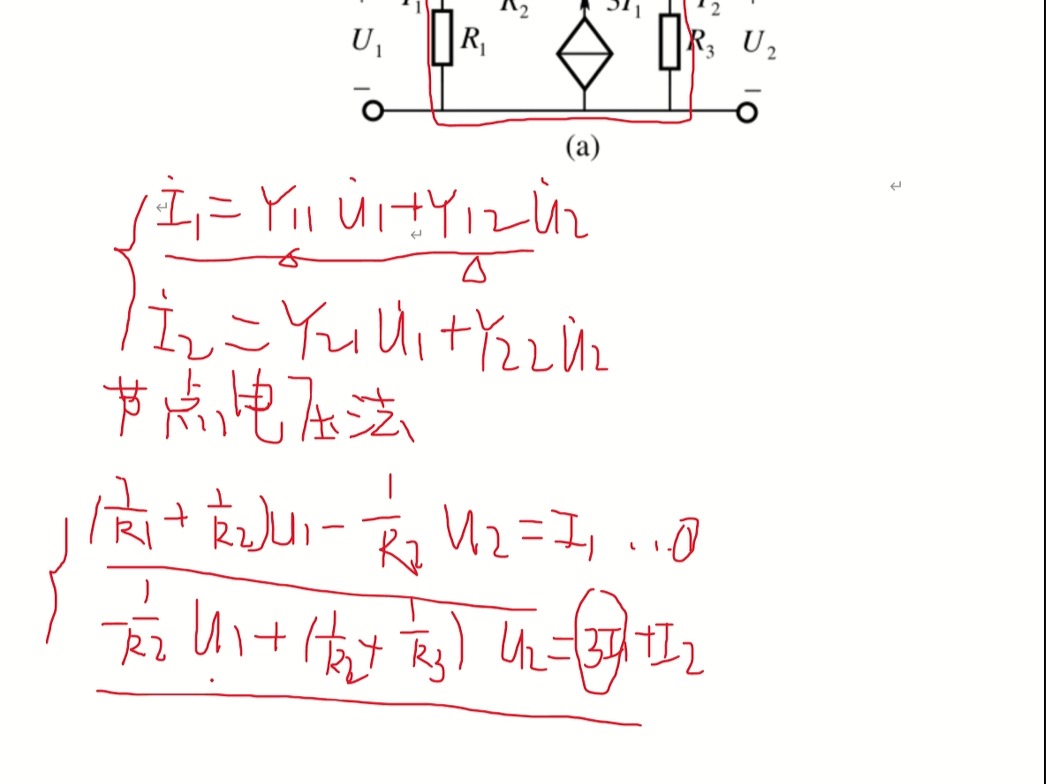 R₂ 3I₁
U₁ R₁ R₃ U₂
− −
(a)
İ₁ = Y₁₁ U̇₁ + Y₁₂ U̇₂
İ₂ = Y₂₁ U̇₁ + Y₂₂ U̇₂
节点电压法
(1/R₁ + 1/R₂)U₁ − 1/R₂ U₂ = I₁ ...①
−1/R₂ U₁ + (1/R₂ + 1/R₃) U₂ = 3I₁ + I₂